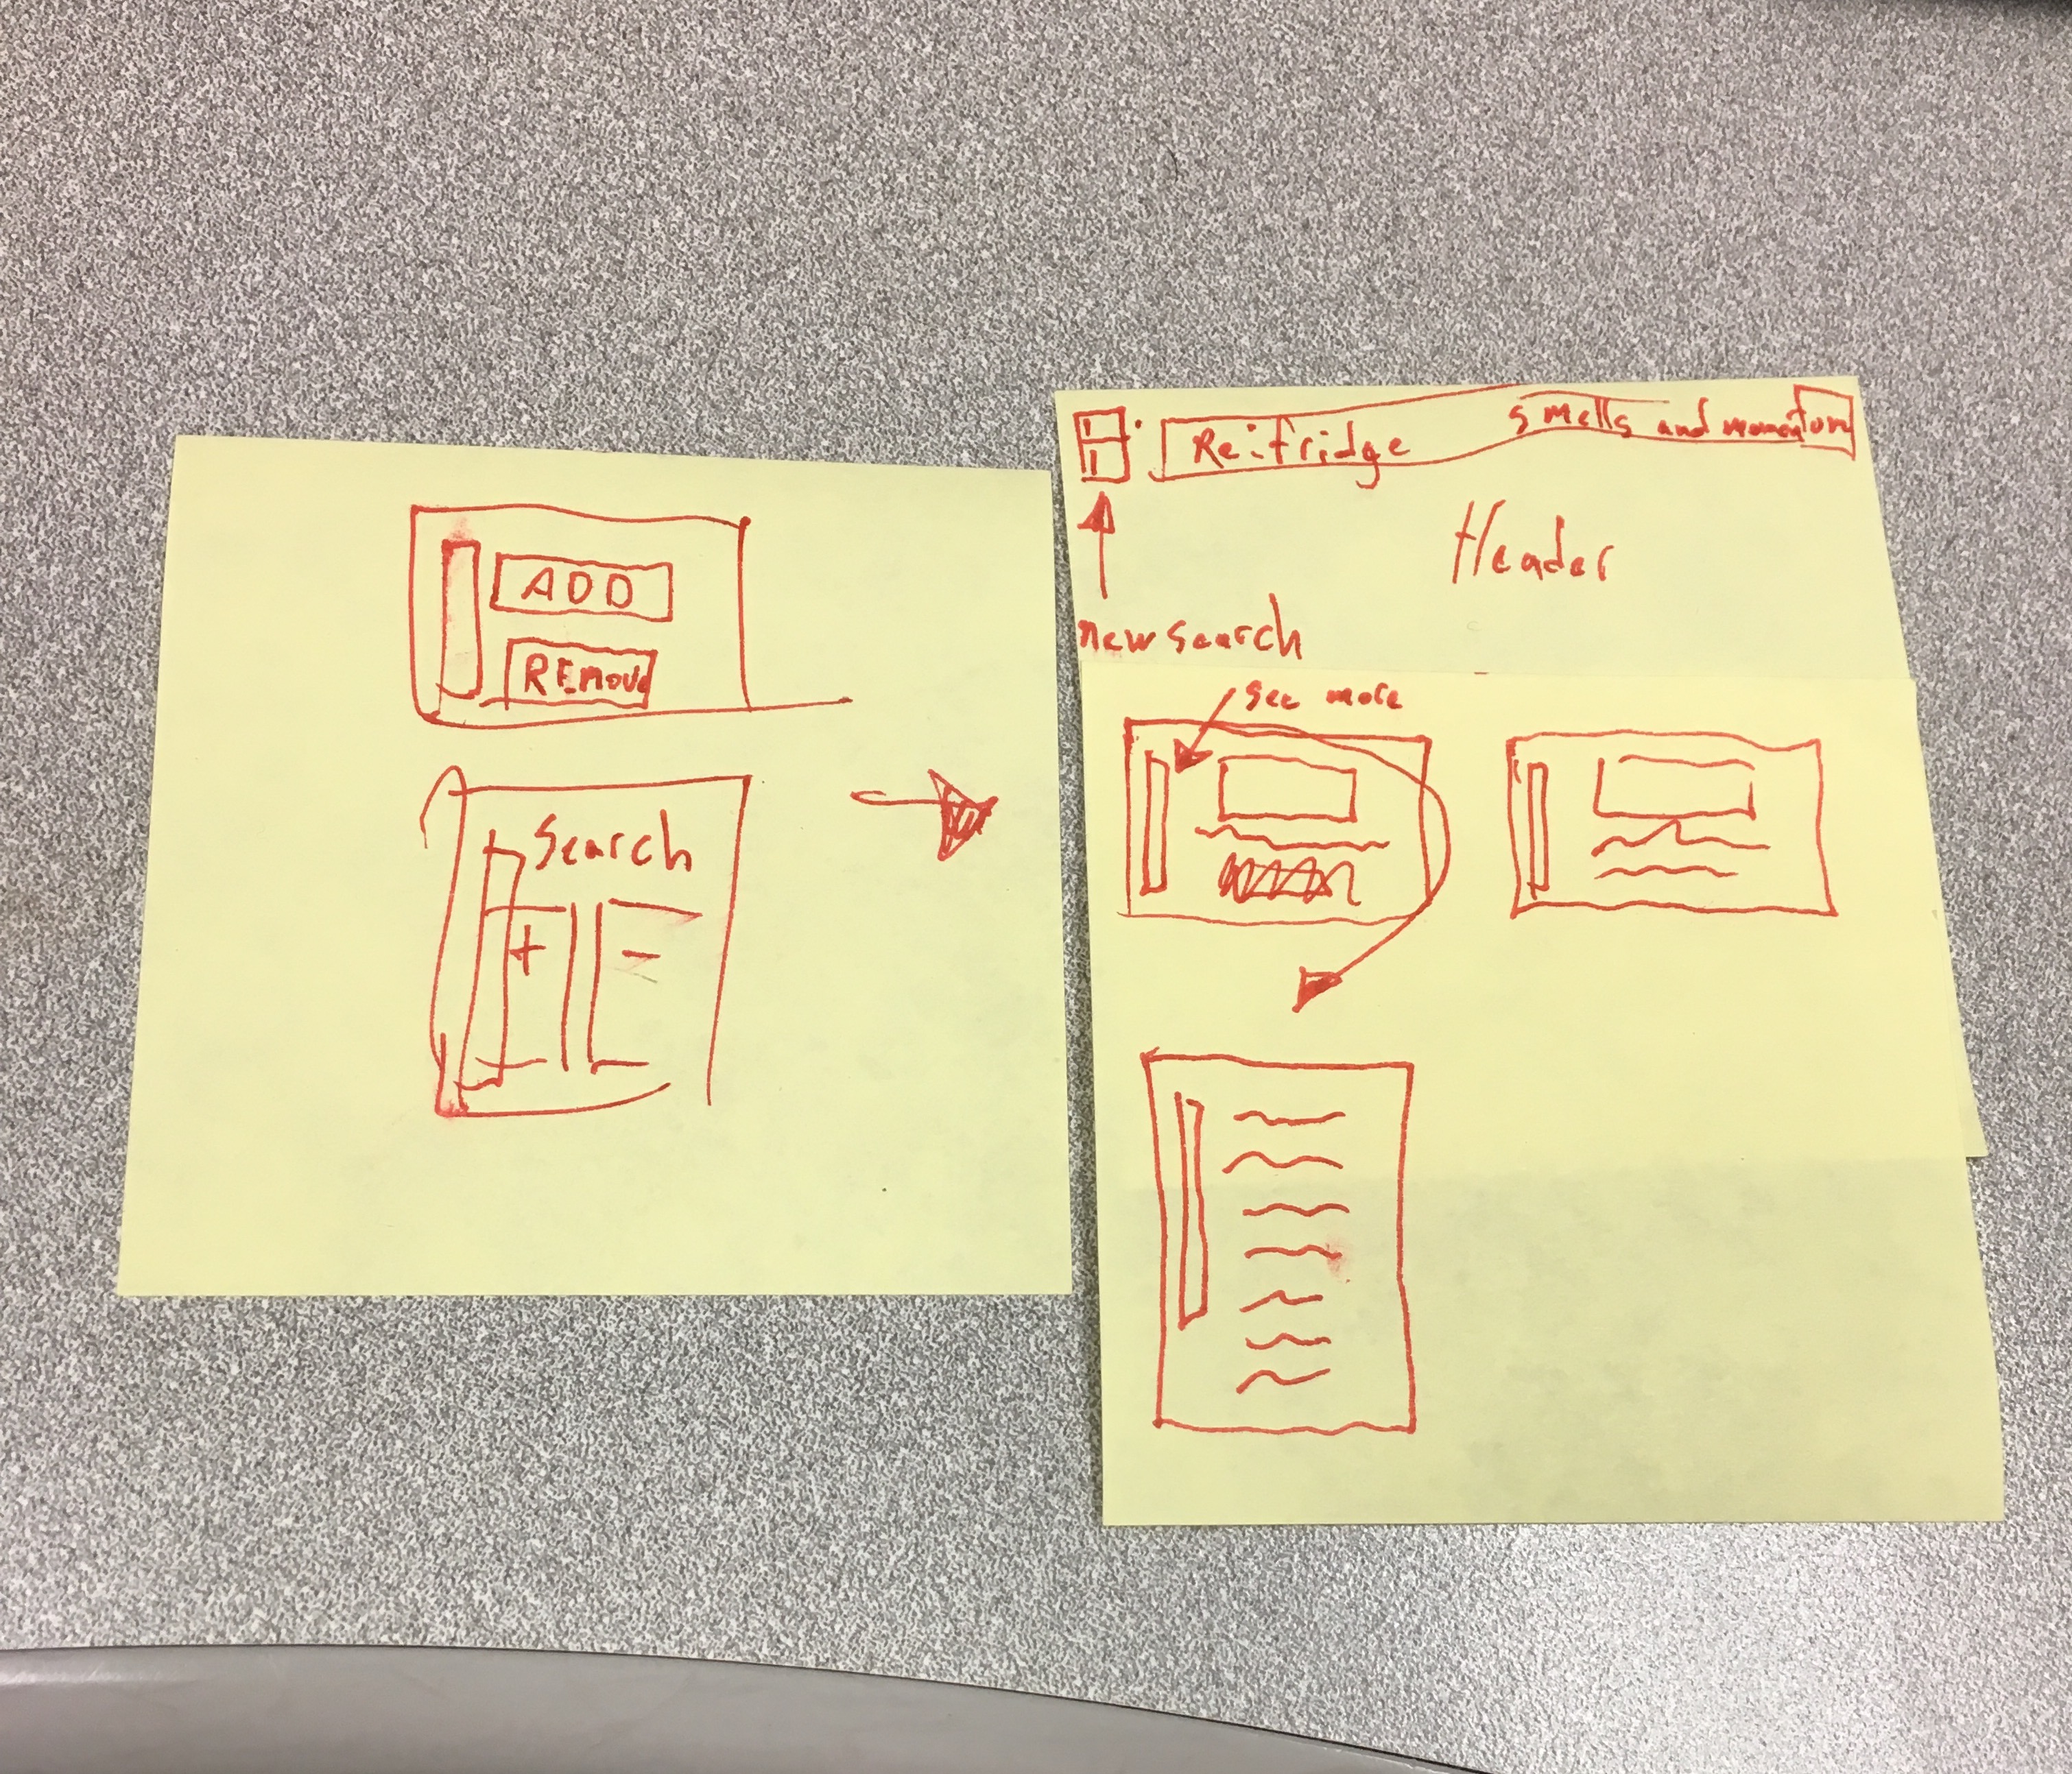 ADD
REMove
Search
+ -
Re:fridge
smells and
Header
new search
see more